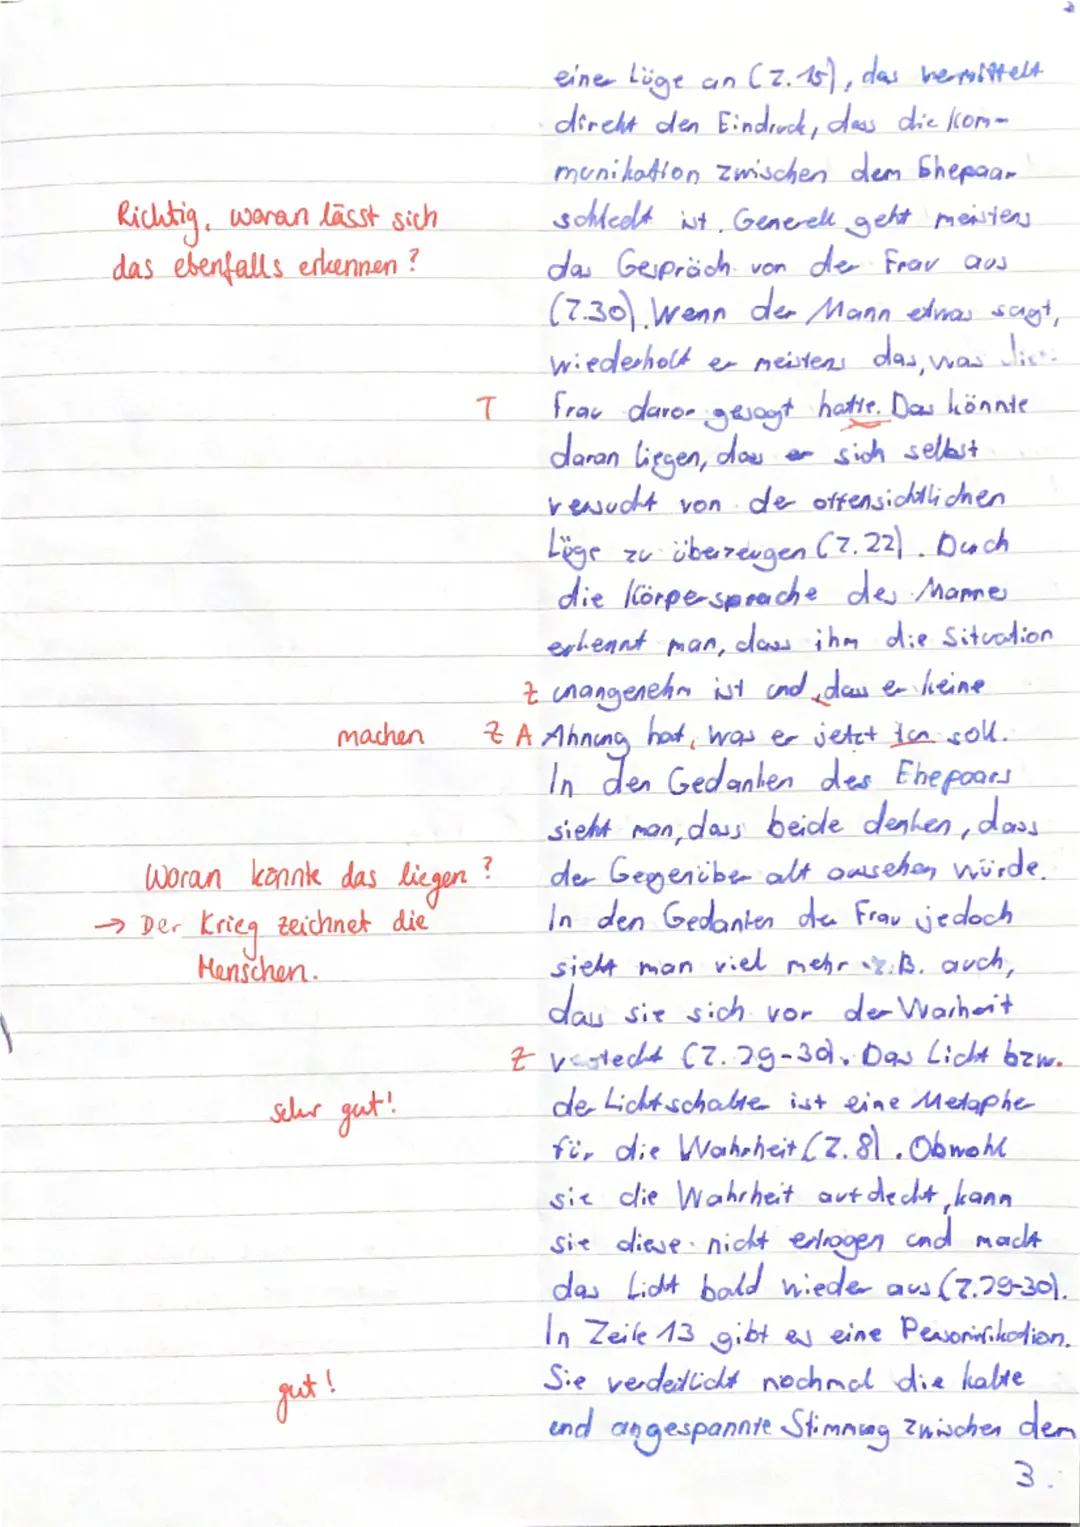 einer Lüge an (Z. 15), das vermittelt
direkt den Eindruck, dass die Kom-
munikation zwischen dem Ehepaar
Richtig, woran lässt sich schlecht ist. Generell geht meistens
das ebenfalls erkennen? das Gespräch von der Frau aus
(Z.30). Wenn der Mann etwas sagt,
wiederholt er meistens das, was die
T Frau davor gesagt hatte. Das könnte
daran liegen, das er sich selbst
versucht von der offensichtlichen
Lüge zu überzeugen (Z. 22). Durch
die Körpersprache des Mannes
erkennt man, dass ihm die Situation
Z unangenehm ist und, dass er keine
machen Z A Ahnung hat, was er jetzt tun soll.
In den Gedanken des Ehepaars
sieht man, dass beide denken, dass
Woran könnte das liegen? der Gegenüber alt aussehen würde.
→ Der Krieg zeichnet die In den Gedanken der Frau jedoch
Menschen. sieht man viel mehr z.B. auch,
dass sie sich vor der Warheit
Z versteckt (Z. 29-30). Das Licht bzw.
sehr gut! der Lichtschalter ist eine Metapher
für die Wahrheit (Z. 8). Obwohl
sie die Wahrheit aufdeckt, kann
sie diese nicht ertragen und macht
das Licht bald wieder aus (Z.29-30).
In Zeile 13 gibt es eine Personifikation.
gut! Sie verdeutlicht nochmal die kalte
und angespannte Stimmung zwischen dem
3.